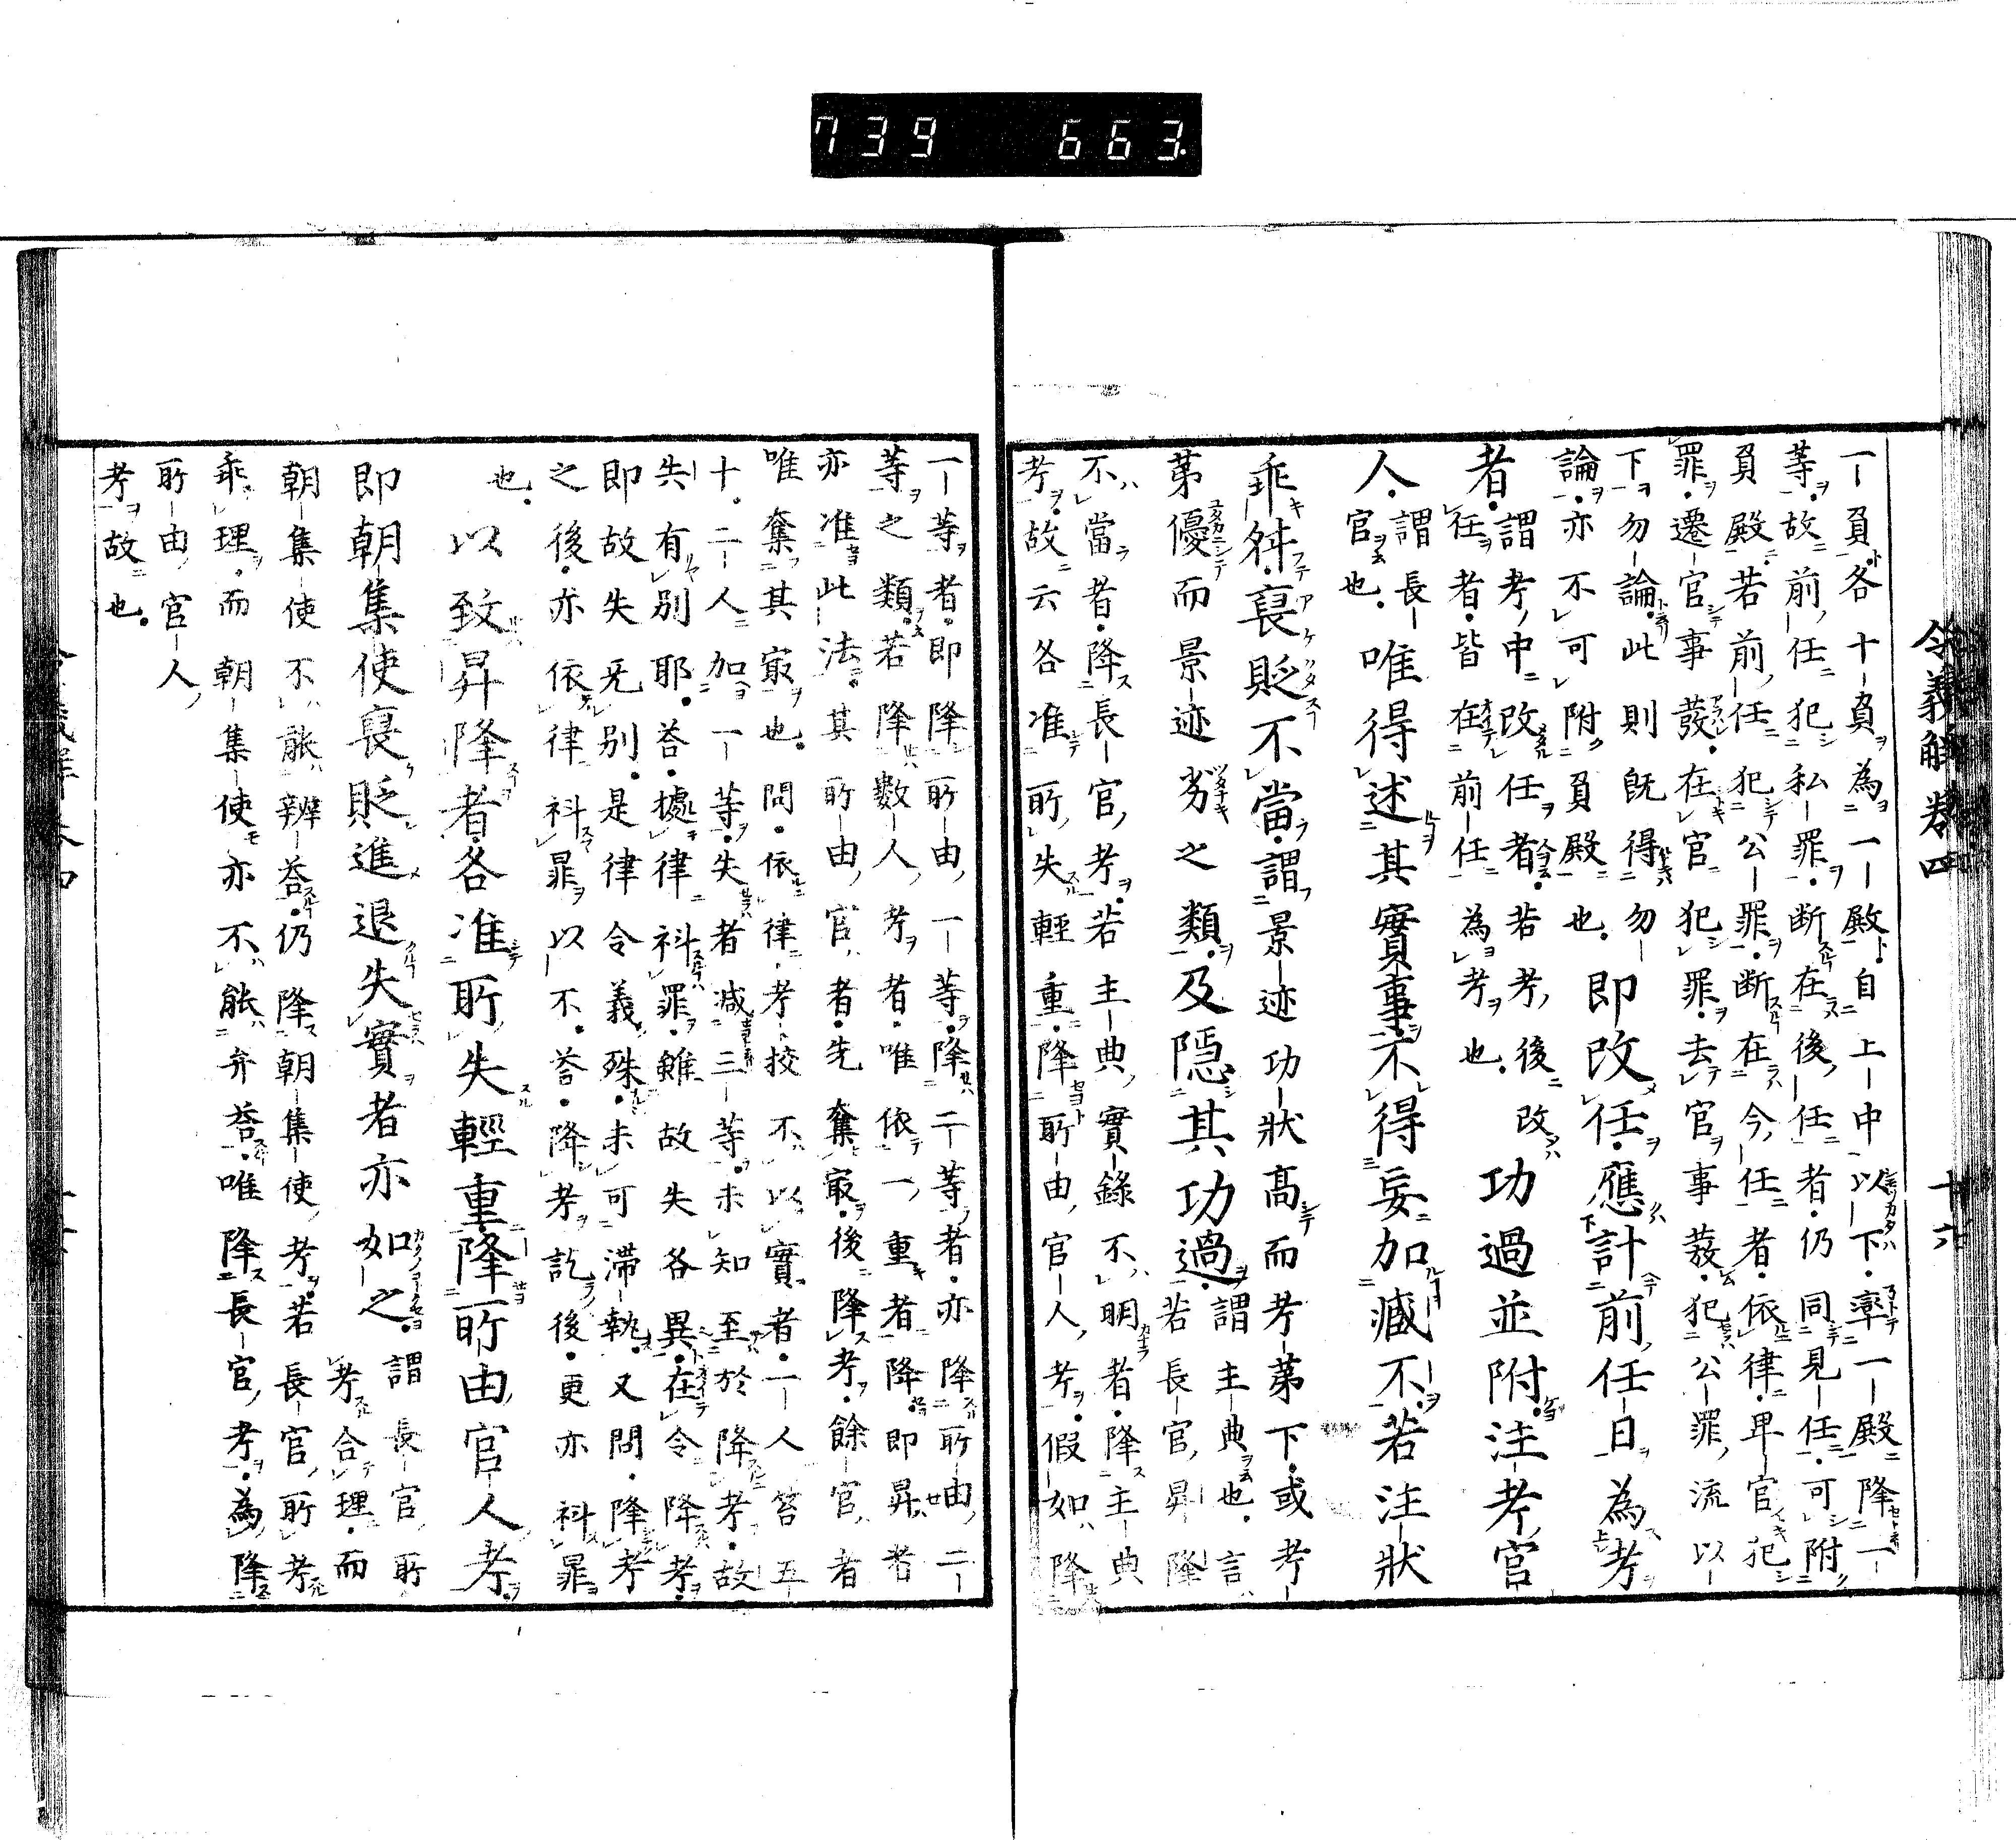 739 663
令義解卷四 十六
一負各十負為一殿自上中以下率一殿降一
等故前任犯私罪断在後任者仍同見任可附
負殿若前任犯公罪断在今任者依律卑官犯
罪遷官事發在官犯罪去官事發犯公罪流以
下勿論此則既得勿
論亦不可附負殿也即改任應計前任日為考
者謂考中改任者若考後改
任者皆在前任為考也功過並附注考官
人謂長
官也唯得述其實事不得妄加臧不若注狀
乖舛襃貶不當謂景迹功狀高而考第下或考
第優而景迹劣之類及隱其功過謂主典也言
若長官昇降
不當者降長官考若主典實錄不明者降主典
考故云各准所失輕重降所由官人考假如降
一等者即降所由一等降二等者亦降所由二
等之類若降數人考者唯依一重者降即昇者
亦准此法其所由官者先奪最後降考餘官者
唯奪其最也問依律考挍不以實者一人笞五
十二人加一等失者减三等未知至於降考故
失有別耶荅據律科罪雖故失各異在令降考
即故失旡別是律令義殊未可滞執又問降考
之後亦依律科罪以不荅降考訖後更亦科罪
也
以致昇降者各准所失輕重降所由官人考
即朝集使襃貶進退失實者亦如之謂長官所
考合理而
朝集使不能辨荅仍降朝集使考若長官所考
乖理而朝集使亦不能弁荅唯降長官考為降
所由官人
考故也